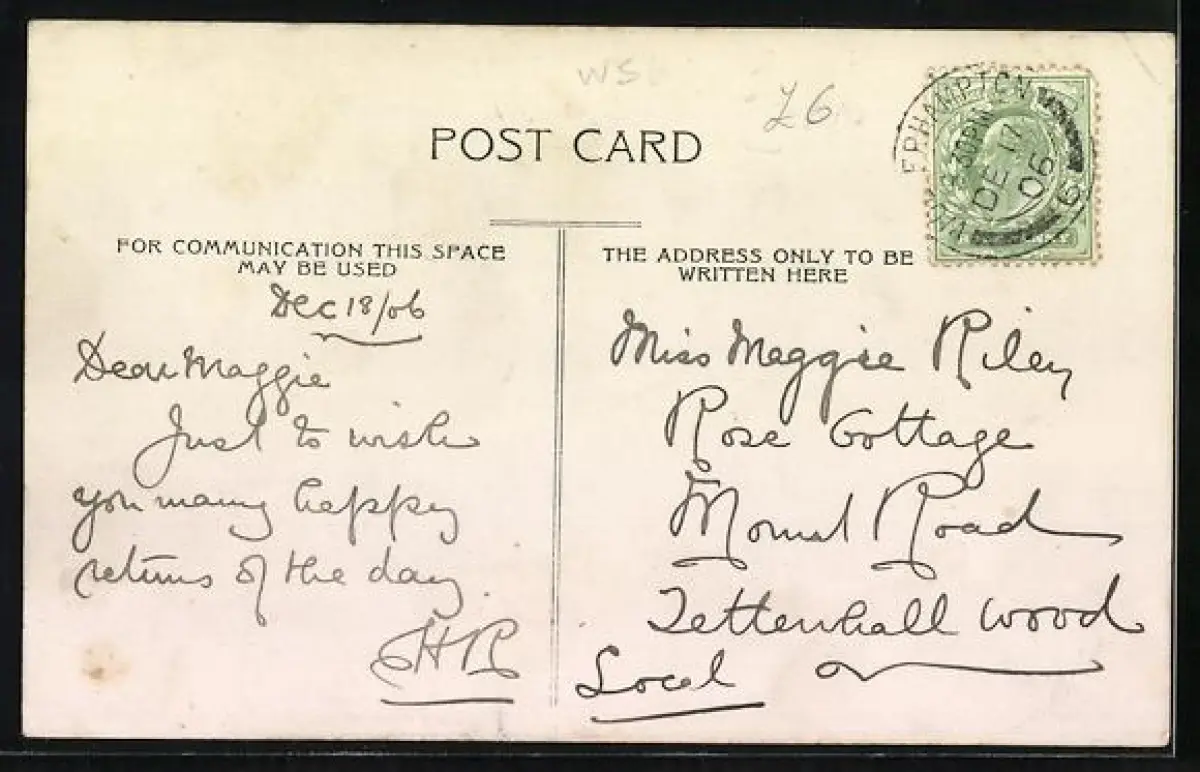 WS
£6
POST CARD
FOR COMMUNICATION THIS SPACE
MAY BE USED
THE ADDRESS ONLY TO BE
WRITTEN HERE
ERHAMPTON
30PM
DE 17
06
6
Dec 18/06
Dear Maggie
Just to wish
you many happy
returns of the day
HR
Miss Maggie Riley
Rose Cottage
Mount Road
Tettenhall Wood
Local